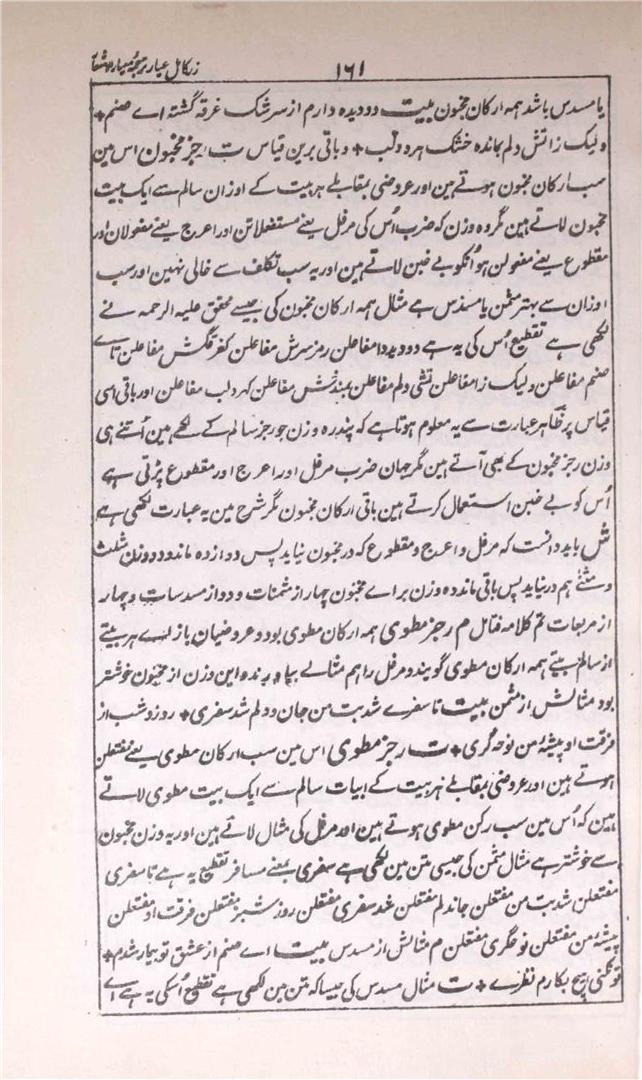 زر کامل عیار ترجمہ معیار الاشعار ۱۶۱
یا مسدس باشد ہمہ ارکان مخبون بیت دو دیدہ دارم از سرشک غرقہ گشتہ اے صنم ٭
ولیک ز آتش دلم بماندہ خشک ہر دو لب ٭ و باقی برین قیاس ت رجز مخبون اس مین
سب ارکان مخبون ہوتے ہین اور عروضی بمقابلے ہر بیت کے اوزان سالم سے ایک بیت
مخبون لاتے ہین مگر وہ وزن کہ ضرب اُس کی مرفل یعنے مستفعلاتن اور اعرج یعنے مفعولان اور
مقطوع یعنے مفعولن ہو اُنکو بے خبن لاتے ہین اور یہ سب تکلف سے خالی نہین اور سب
اوزان سے بہتر مثمن یا مسدس ہے مثال ہمہ ارکان مخبون کی جیسے محقق علیہ الرحمہ نے
لکھی ہے تقطیع اُس کی یہ ہے دو دیدہ دا مفاعلن رمز سرش مفاعلن کغرقگش مفاعلن تاے
صنم مفاعلن ولیک زا مفاعلن تشی دلم مفاعلن بمندخش مفاعلن کہر دلب مفاعلن اور باقی اسی
قیاس پر ظاہر عبارت سے یہ معلوم ہوتا ہے کہ پندرہ وزن جو رجز سالم کے لکھے ہین اُتنے ہی
وزن رجز مخبون کے بھی آتے ہین مگر جہان ضرب مرفل اور اعرج اور مقطوع پڑتی ہے
اُس کو بے خبن استعمال کرتے ہین باقی ارکان مخبون مگر شرح مین یہ عبارت لکھی ہے
ش باید دانست کہ مرفل و اعرج و مقطوع کہ در مخبون نیاید پس دوازدہ ماند و دو وزن مثلث
و مثنے ہم در نیاید پس باقی ماند دہ وزن براے مخبون چہار از مثمنات و دو از مسدسات و چہار
از مربعات تم کلامہ فتامل م رجز مطوی ہمہ ارکان مطوی بود و عروضیان بازاے ہر بیتے
از سالم بیتے ہمہ ارکان مطوی گویند و مرفل را ہم مثالے بیاورند و این وزن از مخبون خوشتر
بود مثالش از مثمن بیت تا سفرے شد بت من جان و دلم شد سفری ٭ روز و شب از
فرقت او پیشۂ من نوحہ گری ٭ ت رجز مطوی اس مین سب ارکان مطوی یعنے مفتعلن
ہوتے ہین اور عروضی بمقابلے ہر بیت کے ابیات سالم سے ایک بیت مطوی لاتے
ہین کہ اُس مین سب رکن مطوی ہوتے ہین اور مرفل کی مثال لاتے ہین اور یہ وزن مخبون
سے خوشتر ہے مثال مثمن کی جیسی متن مین لکھی ہے سفری بمعنے مسافر تقطیع یہ ہے تا سفری
مفتعلن شد بت من مفتعلن جاندلم مفتعلن شد سفری مفتعلن روز شبز مفتعلن فرقت او مفتعلن
پیشۂ من مفتعلن نوحگری مفتعلن م مثالش از مسدس بیت اے صنم از عشق تو بیمار شدم ٭
تو نکنی ہیچ بکارم نظرے ٭ ت مثال مسدس کی جیسا کہ متن مین لکھی ہے تقطیع اُسکی یہ ہے اے